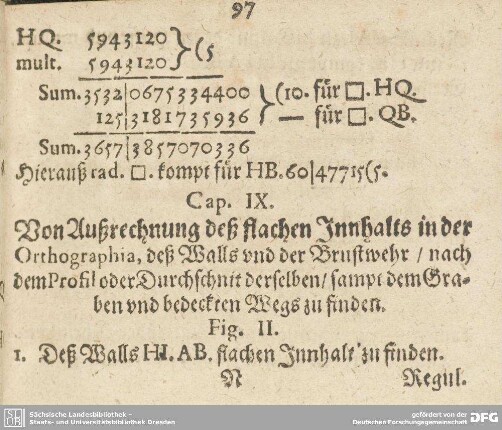 97
HQ. 5943120 } (5
mult. 5943120
Sum. 3532|0675334400 } (10. für □. HQ.
125|3181735936 — für □. QB.
Sum. 3657|3857070336
Hierauß rad. □. kompt für HB. 60|47715(5.
Cap. IX.
Von Außrechnung deß flachen Innhalts in der
Orthographia, deß Walls vnd der Brustwehr / nach
dem Profil oder Durchschnit derselben / sampt dem Gra-
ben vnd bedeckten Wegs zu finden.
Fig. II.
1. Deß Walls HI. AB. flachen Innhalt zu finden.
N Regul.
SLUB Sächsische Landesbibliothek –
Staats- und Universitätsbibliothek Dresden
gefördert von der
Deutschen Forschungsgemeinschaft
DFG